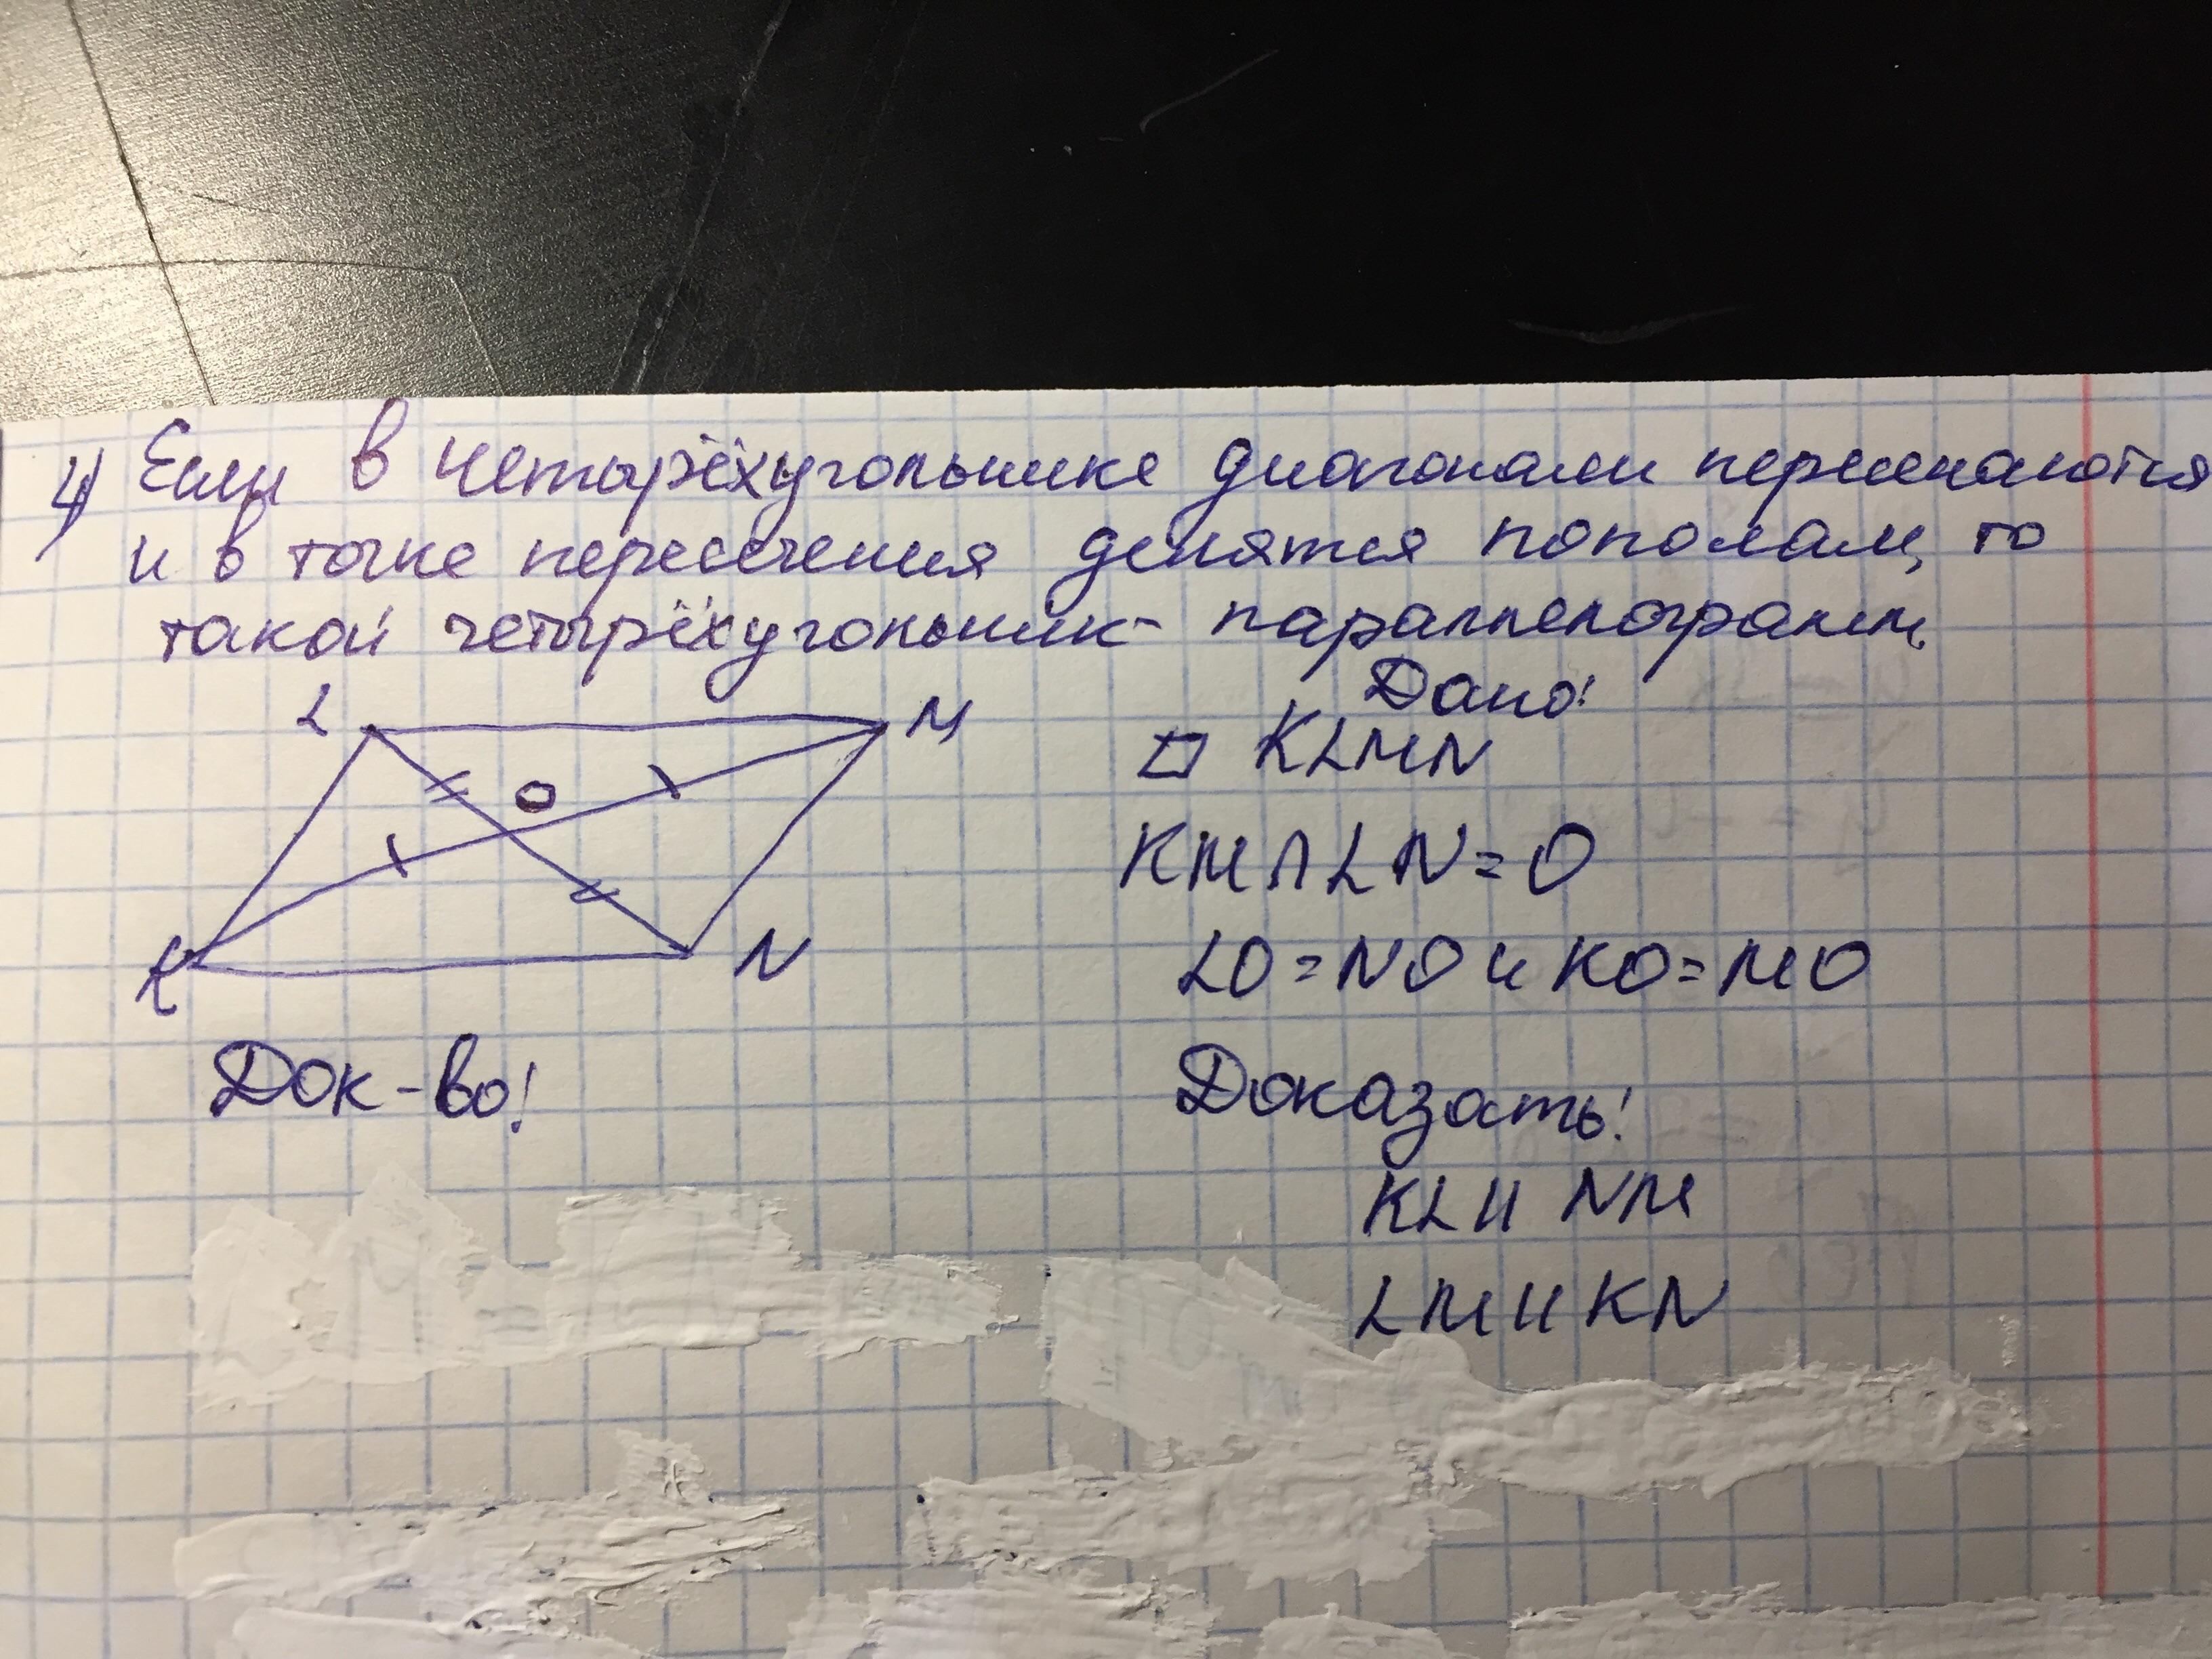 4) Если в четырёхугольнике диагонали пересекаются
и в точке пересечения делятся пополам, то
такой четырёхугольник - параллелограмм.
Дано:
L
M
▱ KLMN
O
KM∩LN=O
LO=NO и KO=MO
K
N
Док-во:
Доказать:
KL || NM
LM || KN